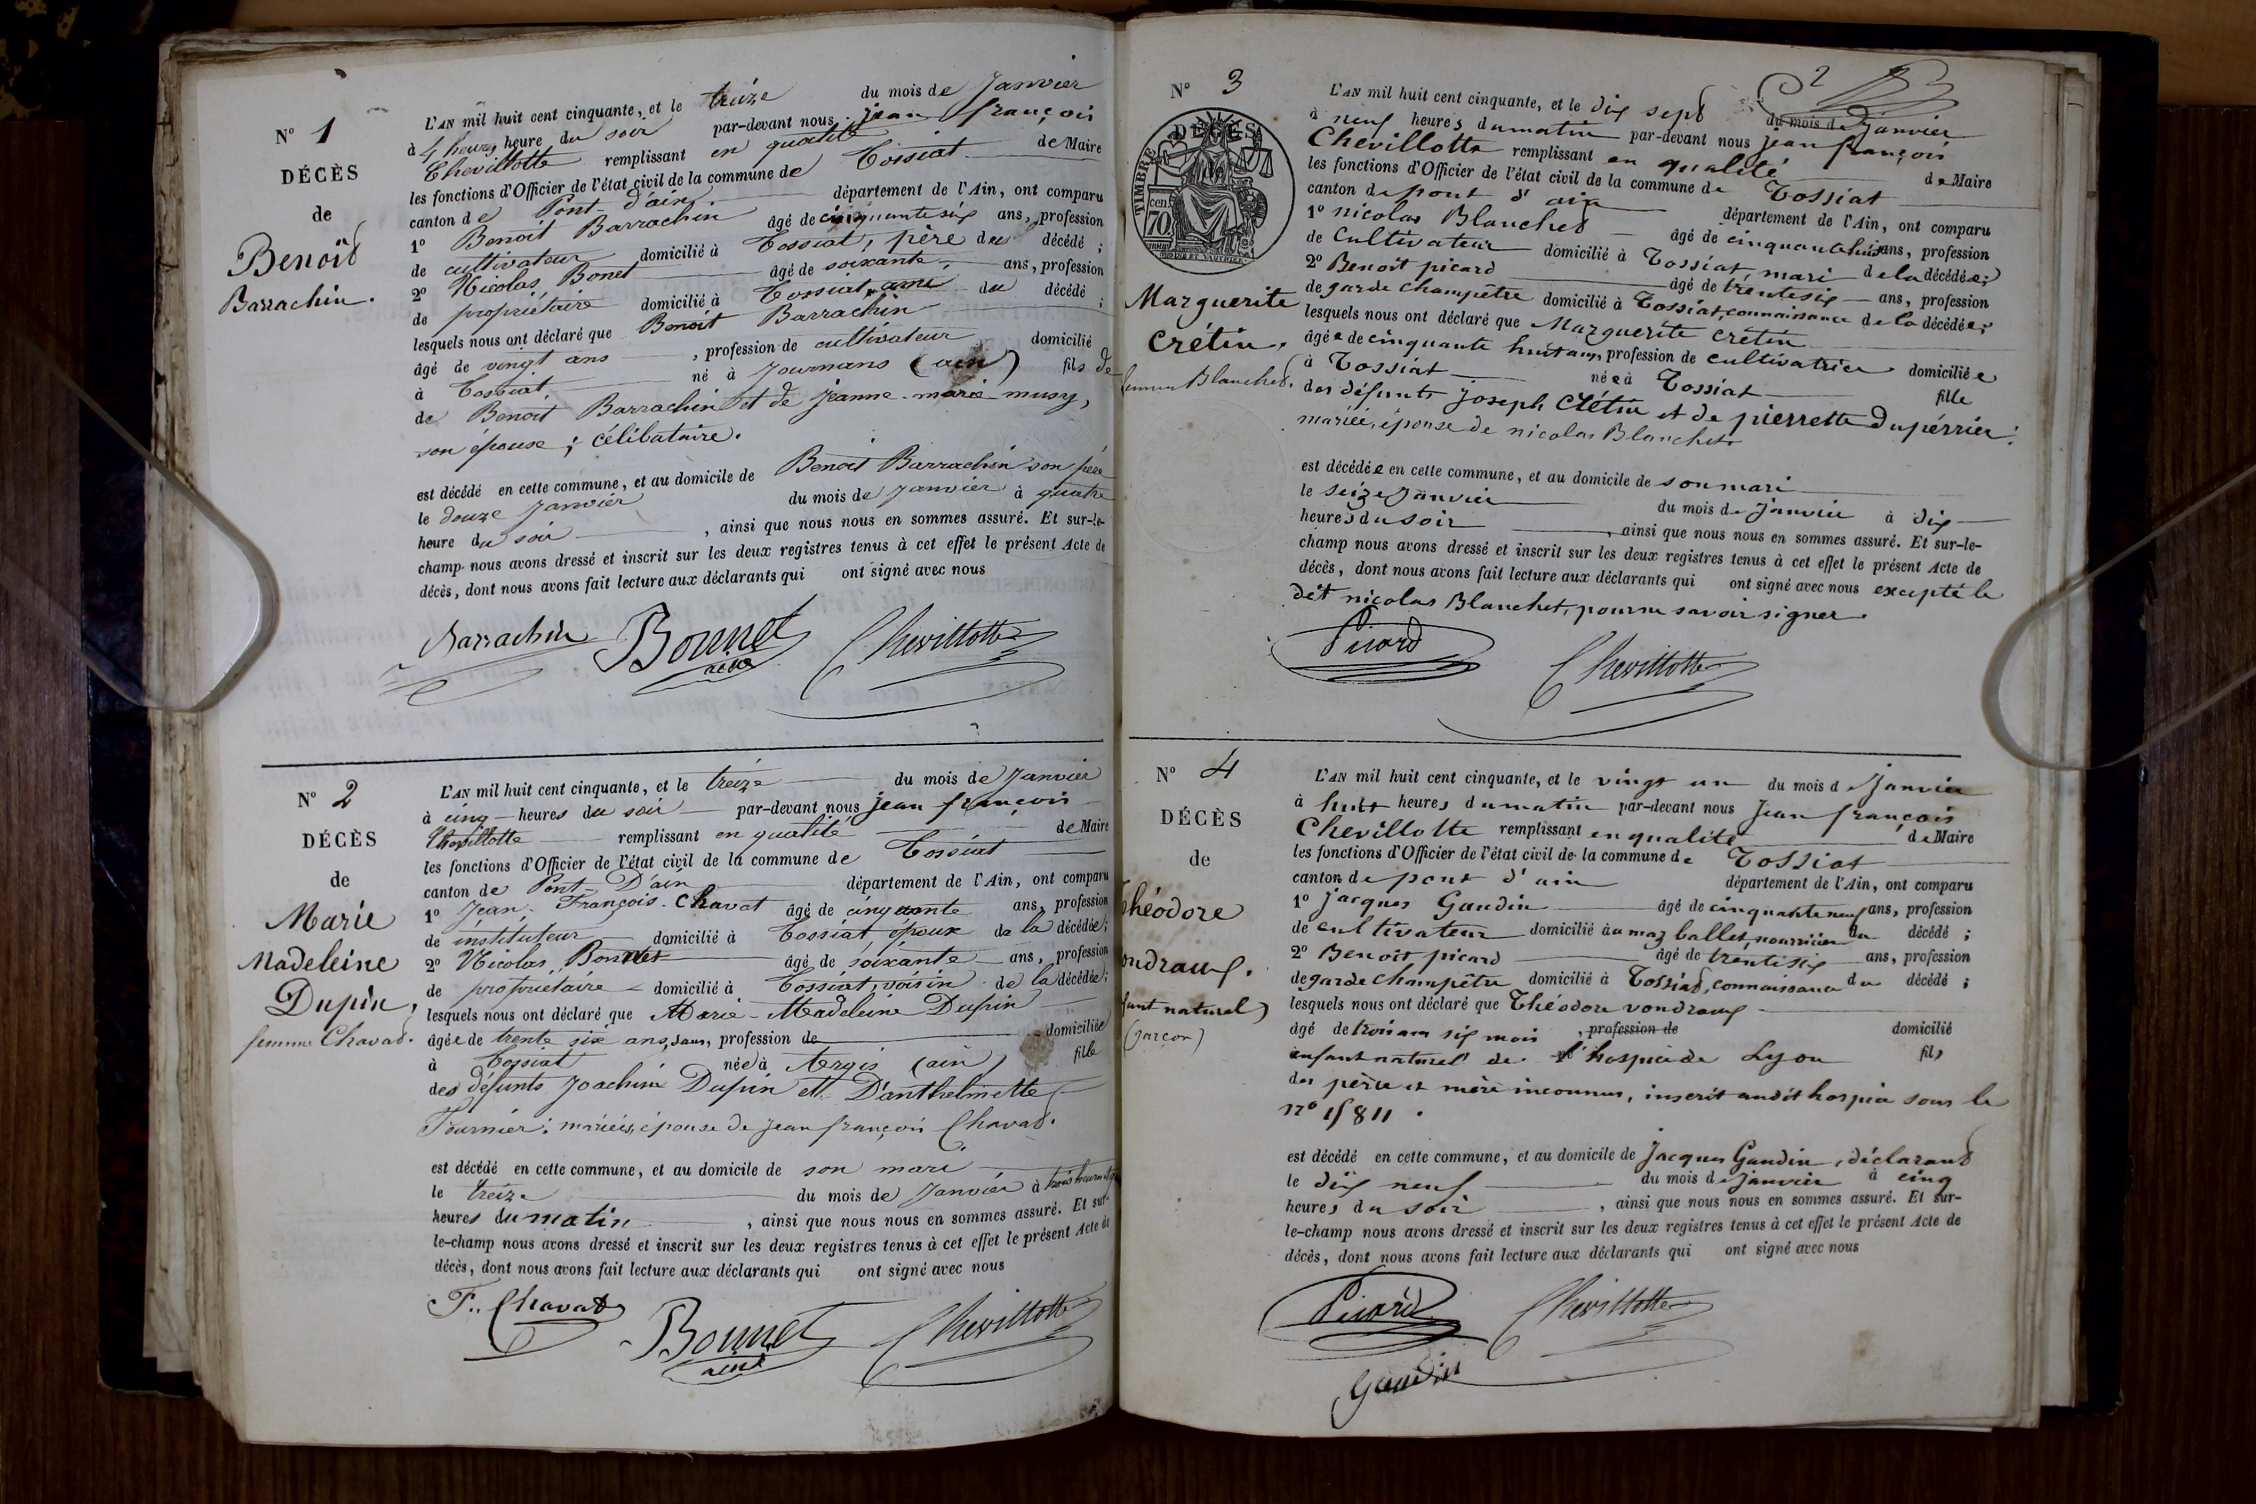 N° 1
DÉCÈS
de
Benoît
Barrachin.
L'AN mil huit cent cinquante, et le treize du mois de Janvier
à 4 heures heure du soir par-devant nous jean françois
Chevillotte remplissant en qualité de Maire
les fonctions d'Officier de l'état civil de la commune de Tossiat
canton de Pont-d'ain département de l'Ain, ont comparu
1° Benoit Barrachin âgé de cinquante six ans, profession
de cultivateur domicilié à Tossiat, père du décédé ;
2° Nicolas Bonet âgé de soixante ans, profession
de propriétaire domicilié à Tossiat, ami du décédé ;
lesquels nous ont déclaré que Benoit Barrachin
âgé de vingt ans , profession de cultivateur domicilié
à Tossiat, né à Journans (ain) fils de
de Benoit Barrachin et de jeanne-marie musy,
son épouse ; célibataire.
est décédé en cette commune, et au domicile de Benoit Barrachin son père
le douze Janvier du mois de janvier à quatre
heure du soir , ainsi que nous nous en sommes assuré. Et sur-le-
champ nous avons dressé et inscrit sur les deux registres tenus à cet effet le présent Acte de
décès, dont nous avons fait lecture aux déclarants qui ont signé avec nous
Barrachin Bonnet Chevillotte
aîné
N° 2
DÉCÈS
de
Marie
Madeleine
Dupin,
femme Chavat.
L'AN mil huit cent cinquante, et le treize du mois de Janvier
à cinq heures du soir par-devant nous jean françois
Chevillotte remplissant en qualité de Maire
les fonctions d'Officier de l'état civil de la commune de Tossiat
canton de Pont-D'ain département de l'Ain, ont comparu
1° Jean-François Chavat âgé de cinquante ans, profession
de instituteur domicilié à Tossiat époux de la décédée ;
2° Nicolas Bonnet âgé de soixante ans, profession
de propriétaire domicilié à Tossiat, voisin de la décédée ;
lesquels nous ont déclaré que Marie-Madeleine Dupin
âgée de trente six ans, sans, profession de domiciliée
à Tossiat née à Argis (ain) fille
des défunts Joachim Dupin et D'anthelmette
Fournier ; mariée, épouse de jean françois Chavat.
est décédé en cette commune, et au domicile de son mari
le treize du mois de Janvier à trois heures
heures du matin , ainsi que nous nous en sommes assuré. Et sur-
le-champ nous avons dressé et inscrit sur les deux registres tenus à cet effet le présent Acte de
décès, dont nous avons fait lecture aux déclarants qui ont signé avec nous
F. Chavat Bonnet Chevillotte
aîné
2
N° 3
TIMBRE DÉCÈS
70 cen
Marguerite
Crétin,
femme Blanchet.
L'AN mil huit cent cinquante, et le dix sept du mois de janvier
à neuf heures du matin par-devant nous jean françois
Chevillotte remplissant en qualité de Maire
les fonctions d'Officier de l'état civil de la commune de Tossiat
canton de pont d'ain département de l'Ain, ont comparu
1° nicolas Blanchet âgé de cinquante huit ans, profession
de Cultivateur domicilié à Tossiat, mari de la décédée ;
2° Benoît picard âgé de trente six ans, profession
de garde champêtre domicilié à Tossiat, connaissance de la décédée ;
lesquels nous ont déclaré que Marguerite Crétin
âgée de cinquante huit ans, profession de cultivatrice domiciliée
à Tossiat née à Tossiat fille
des défunts joseph Crétin et de pierrette Dupérrier.
mariée, épouse de nicolas Blanchet.
est décédée en cette commune, et au domicile de son mari
le seize Janvier du mois de janvier à dix
heures du soir , ainsi que nous nous en sommes assuré. Et sur-le-
champ nous avons dressé et inscrit sur les deux registres tenus à cet effet le présent Acte de
décès, dont nous avons fait lecture aux déclarants qui ont signé avec nous excepté le
dit nicolas Blanchet, pour ne savoir signer.
Picard Chevillotte
N° 4
DÉCÈS
de
Théodore
ondraux.
fant naturel)
(garçon)
L'AN mil huit cent cinquante, et le vingt un du mois de Janvier
à huit heures du matin par-devant nous Jean françois
Chevillotte remplissant en qualité de Maire
les fonctions d'Officier de l'état civil de la commune de Tossiat
canton de pont d'ain département de l'Ain, ont comparu
1° jacques Gaudin âgé de cinquante neuf ans, profession
de cultivateur domicilié au maz ballet, nourricier du décédé ;
2° Benoît picard âgé de trente six ans, profession
de garde champêtre domicilié à Tossiat, connaissance du décédé ;
lesquels nous ont déclaré que Théodore vondraux
âgé de trois ans six mois , profession de domicilié
enfant naturel de l'hospice de Lyon fils
des père et mère inconnus, inscrit au dit hospice sous le
n° 15811.
est décédé en cette commune, et au domicile de Jacques Gaudin, déclarant
le dix neuf du mois de janvier à cinq
heures du soir , ainsi que nous nous en sommes assuré. Et sur-
le-champ nous avons dressé et inscrit sur les deux registres tenus à cet effet le présent Acte de
décès, dont nous avons fait lecture aux déclarants qui ont signé avec nous
Picard Chevillotte
Gaudin